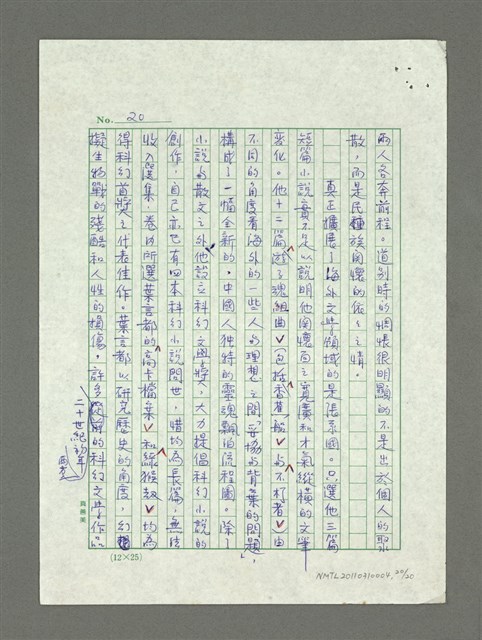 No. 20
兩人各奔前程。道別時的惆悵很明顯的不是出於個人的聚
散，而是民種族關懷的依依之情。
真正擴展了海外文學領域的是張系國。只選他三篇
短篇小說實不足以說明他關懷面之寬廣和才氣縱橫的文筆
變化。他十二篇遊子魂組曲（包括香蕉船與不朽者）由
不同的角度看海外的一些人的理想之間「妥協與背棄的問題」，
構成了一幅全新的，中國人獨特的靈魂飄泊流程圖。除了
小說與散文之外他設立科幻文學獎，大力提倡科幻小說的
創作，自己亦已有四本科幻小說問世，惜均為長篇，無法
收入選集，卷內所選葉言都的高卡檔案和綠猴劫均為
得科幻首獎之代表佳作。葉言都以研究歷史的角度，幻想
擬生物戰的殘酷和人性的損傷。許多從前的科幻文學作品
二十世紀初年
(12×25)
NMTL20110310004, 20/20